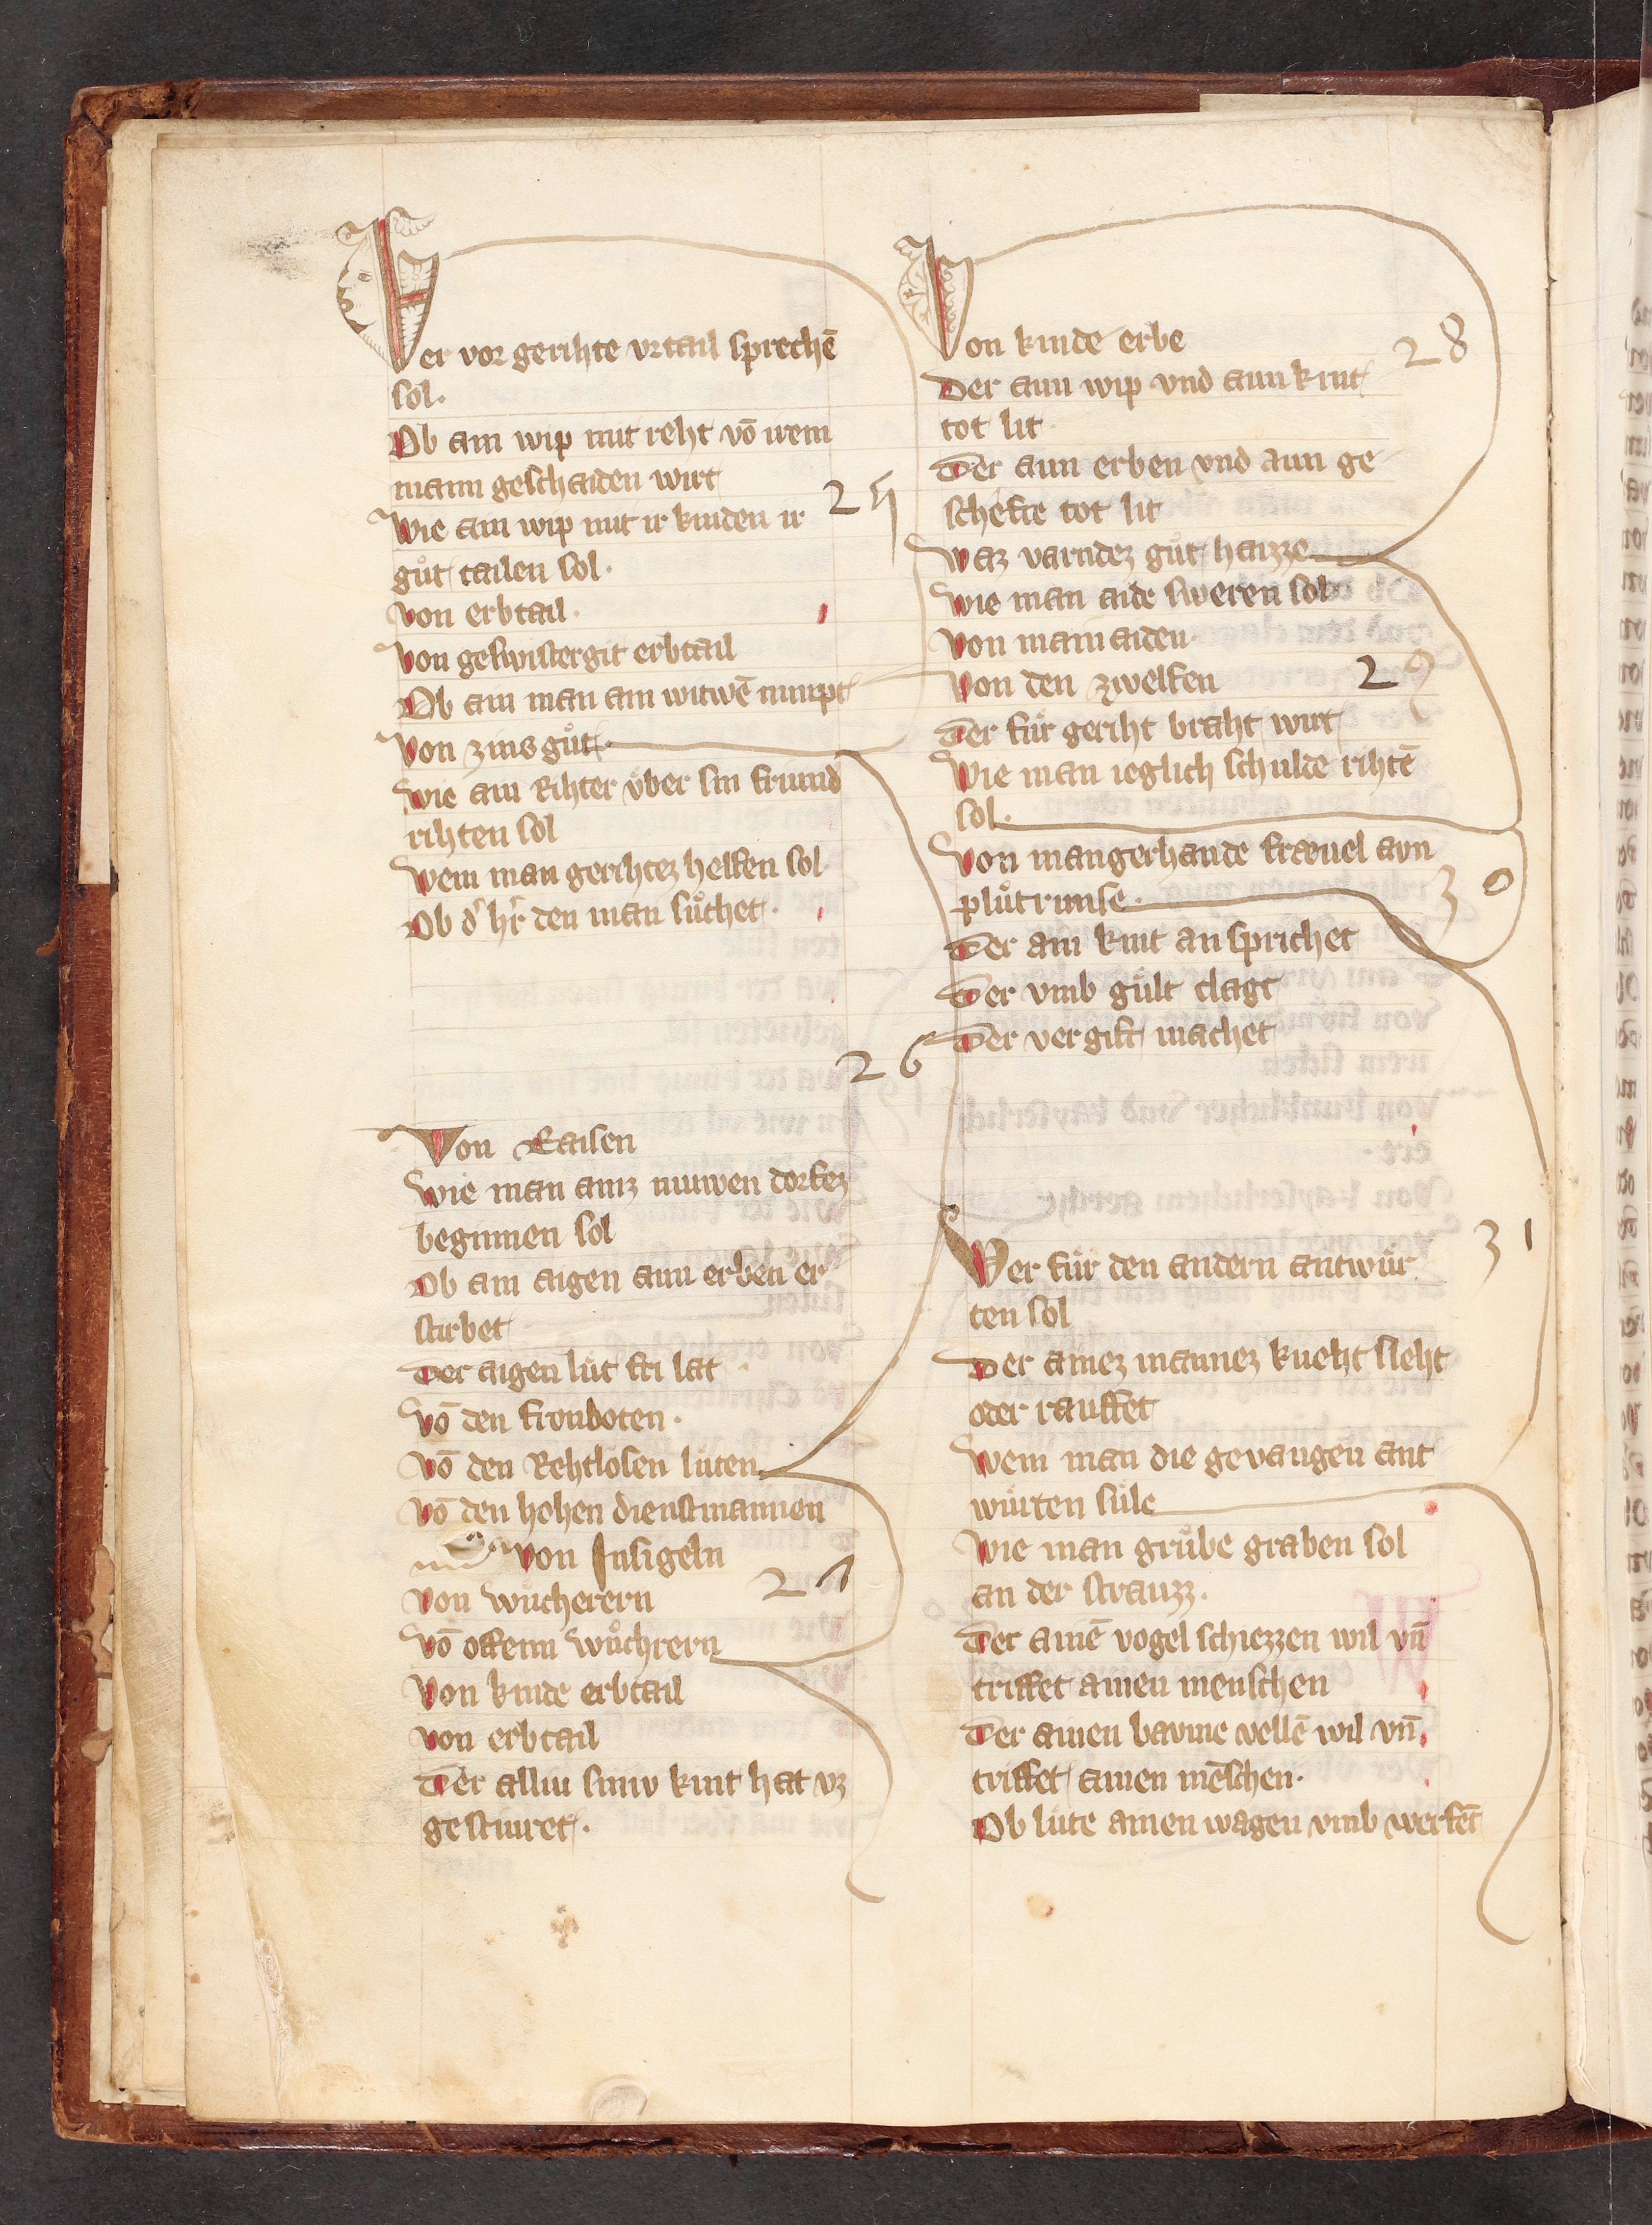 Wer vor gerihte vrtail sprechē
sol.
Ob ain wip mit reht vō irem
mann geschaiden wirt
Wie ain wip mit ir kinden ir 25
gůt tailen sol.
Von erbtail.
Von geswistergit erbtail
Ob ain man ain witwē nimpt
Von zinsgůt.
Wie ain Rihter v̈ber sin friund
rihten sol
Wem man gerihtez helfen sol
Ob d' h'r den man sůchet.
26
Von Raisen
Wie man ainz niuwen dorfez
beginnen sol
Ob ain aigen ann erben er
stirbet
Der aigen lüt fri lat
Vō den fronboten.
Vō den Rehtlosen lüten
Vō den hohen dienstmannen
von Insigeln
Von wůcherern 27
Vō offenn wůchrern
Von kinde erbtail
Von erbtail
Der alliu siniv kint hat vz
gestiuret.
Von kinde erbe 28
Der ann wip vnd ann kint
tot lit
Der ann erben vnd ann ge
schefte tot lit
Waz varndez gůt haizze
Wie man aide sweren sol
Von main aiden
Von den zwelfen 29
Der für geriht braht wirt
Wie man ieglich schulde rihtē
sol.
Von mangerhande frævel avn
plůtrunse. 30
Der ain kint an sprichet
Der vmb gült clagt
Der vergift machet
Wer für den andern antwür 31
ten sol
Der ainez mannez kneht sleht
oder rauffet
Wem man die gevangen ant
würten süle
Wie man grůbe graben sol
an der strauzz.
Der ainē vogel schiezzen wil vn̄
triffet ainen menschen
Der ainen bavme vellē wil vn̄
triffet ainen mēschen.
Ob lüte ainen wagen vmb werfēt